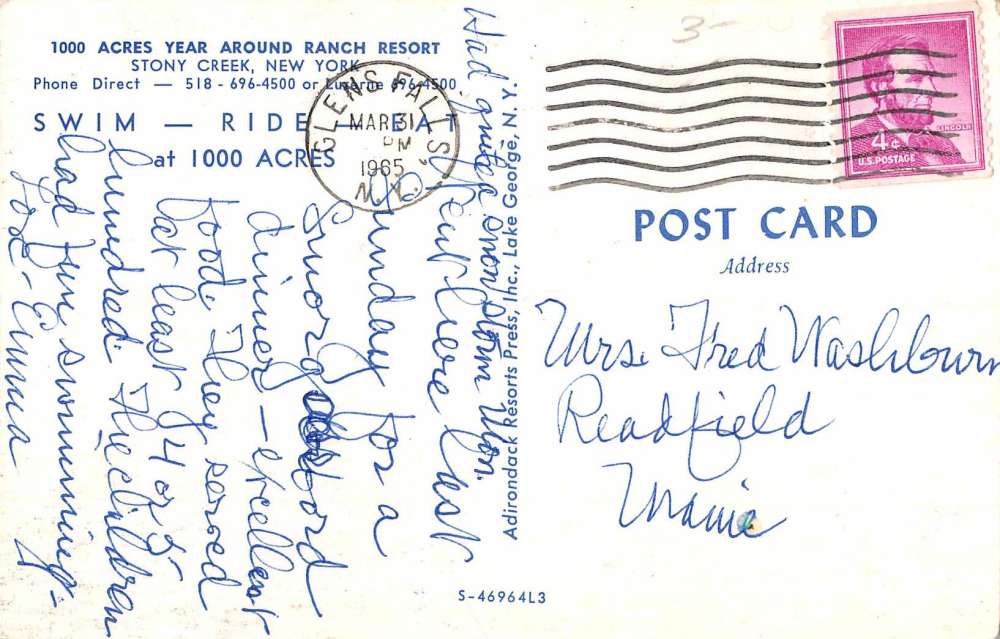 1000 ACRES YEAR AROUND RANCH RESORT
STONY CREEK, NEW YORK
Phone Direct — 518 - 696-4500 or Luzerne 696-4500
SWIM — RIDE — EAT
at 1000 ACRES
GLENS FALLS,
MAR 31
PM
1965
N.Y.
LINCOLN
4¢
U.S. POSTAGE
3-
POST CARD
Address
Mrs. Fred Washburn
Readfield
Maine
Had quite snow storm Mon.
Went here last
Sunday for a
Smorgasbord
dinner - excellent
food. They served
at least 4 or 5
hundred. The children
had fun swimming -
Love - Emma
Adirondack Resorts Press, Inc., Lake George, N. Y.
S-46964L3